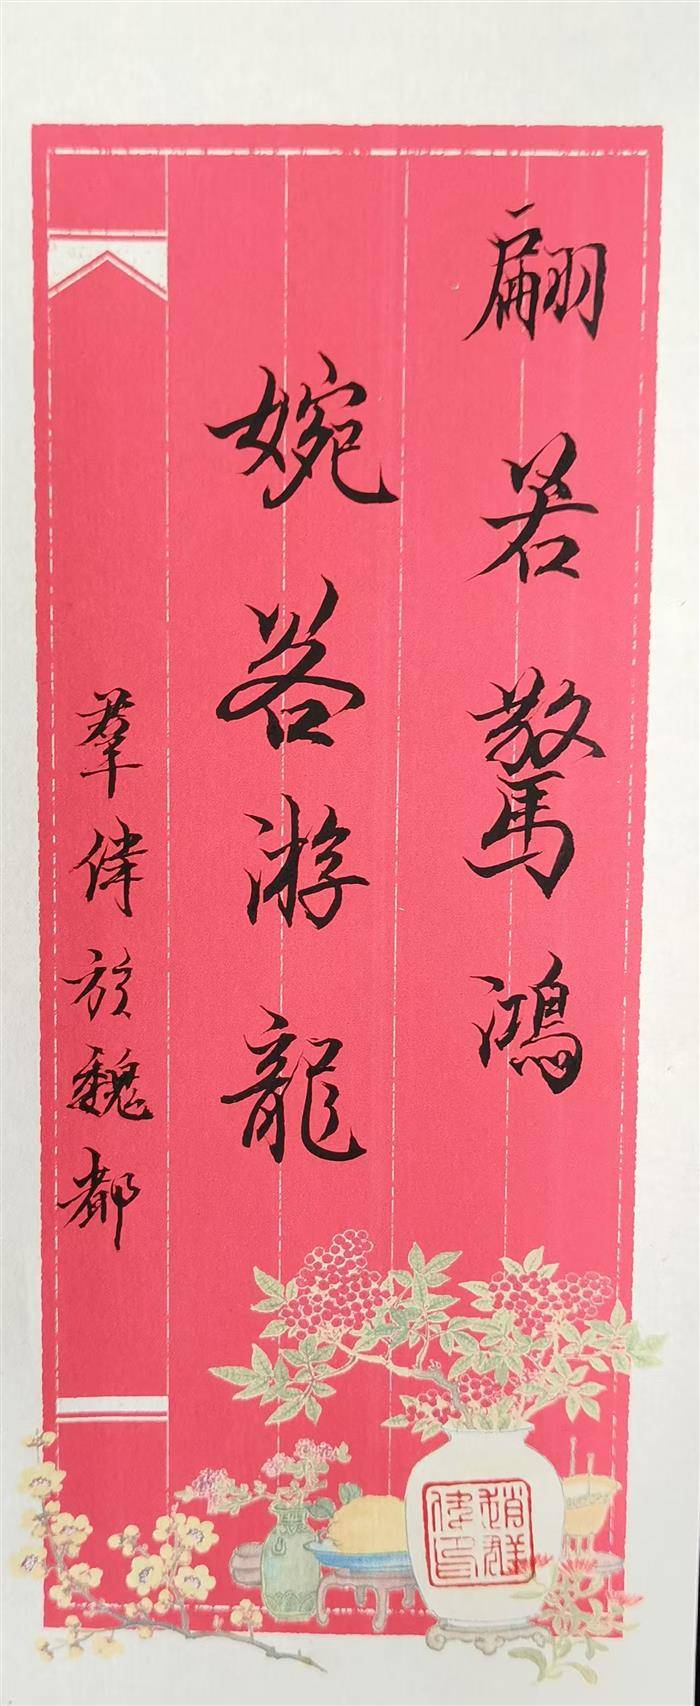 翩若驚鴻
婉若游龍
羣偉於魏都
趙群偉印